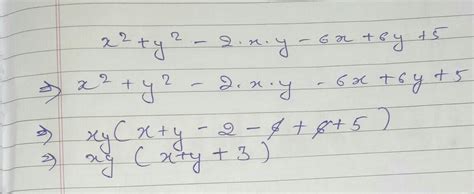 x² + y² - 2·x·y - 6x + 6y + 5
⇒ x² + y² - 2·x·y - 6x + 6y + 5
⇒ xy ( x + y - 2 - 6 + 6 + 5 )
⇒ xy ( x + y + 3 )